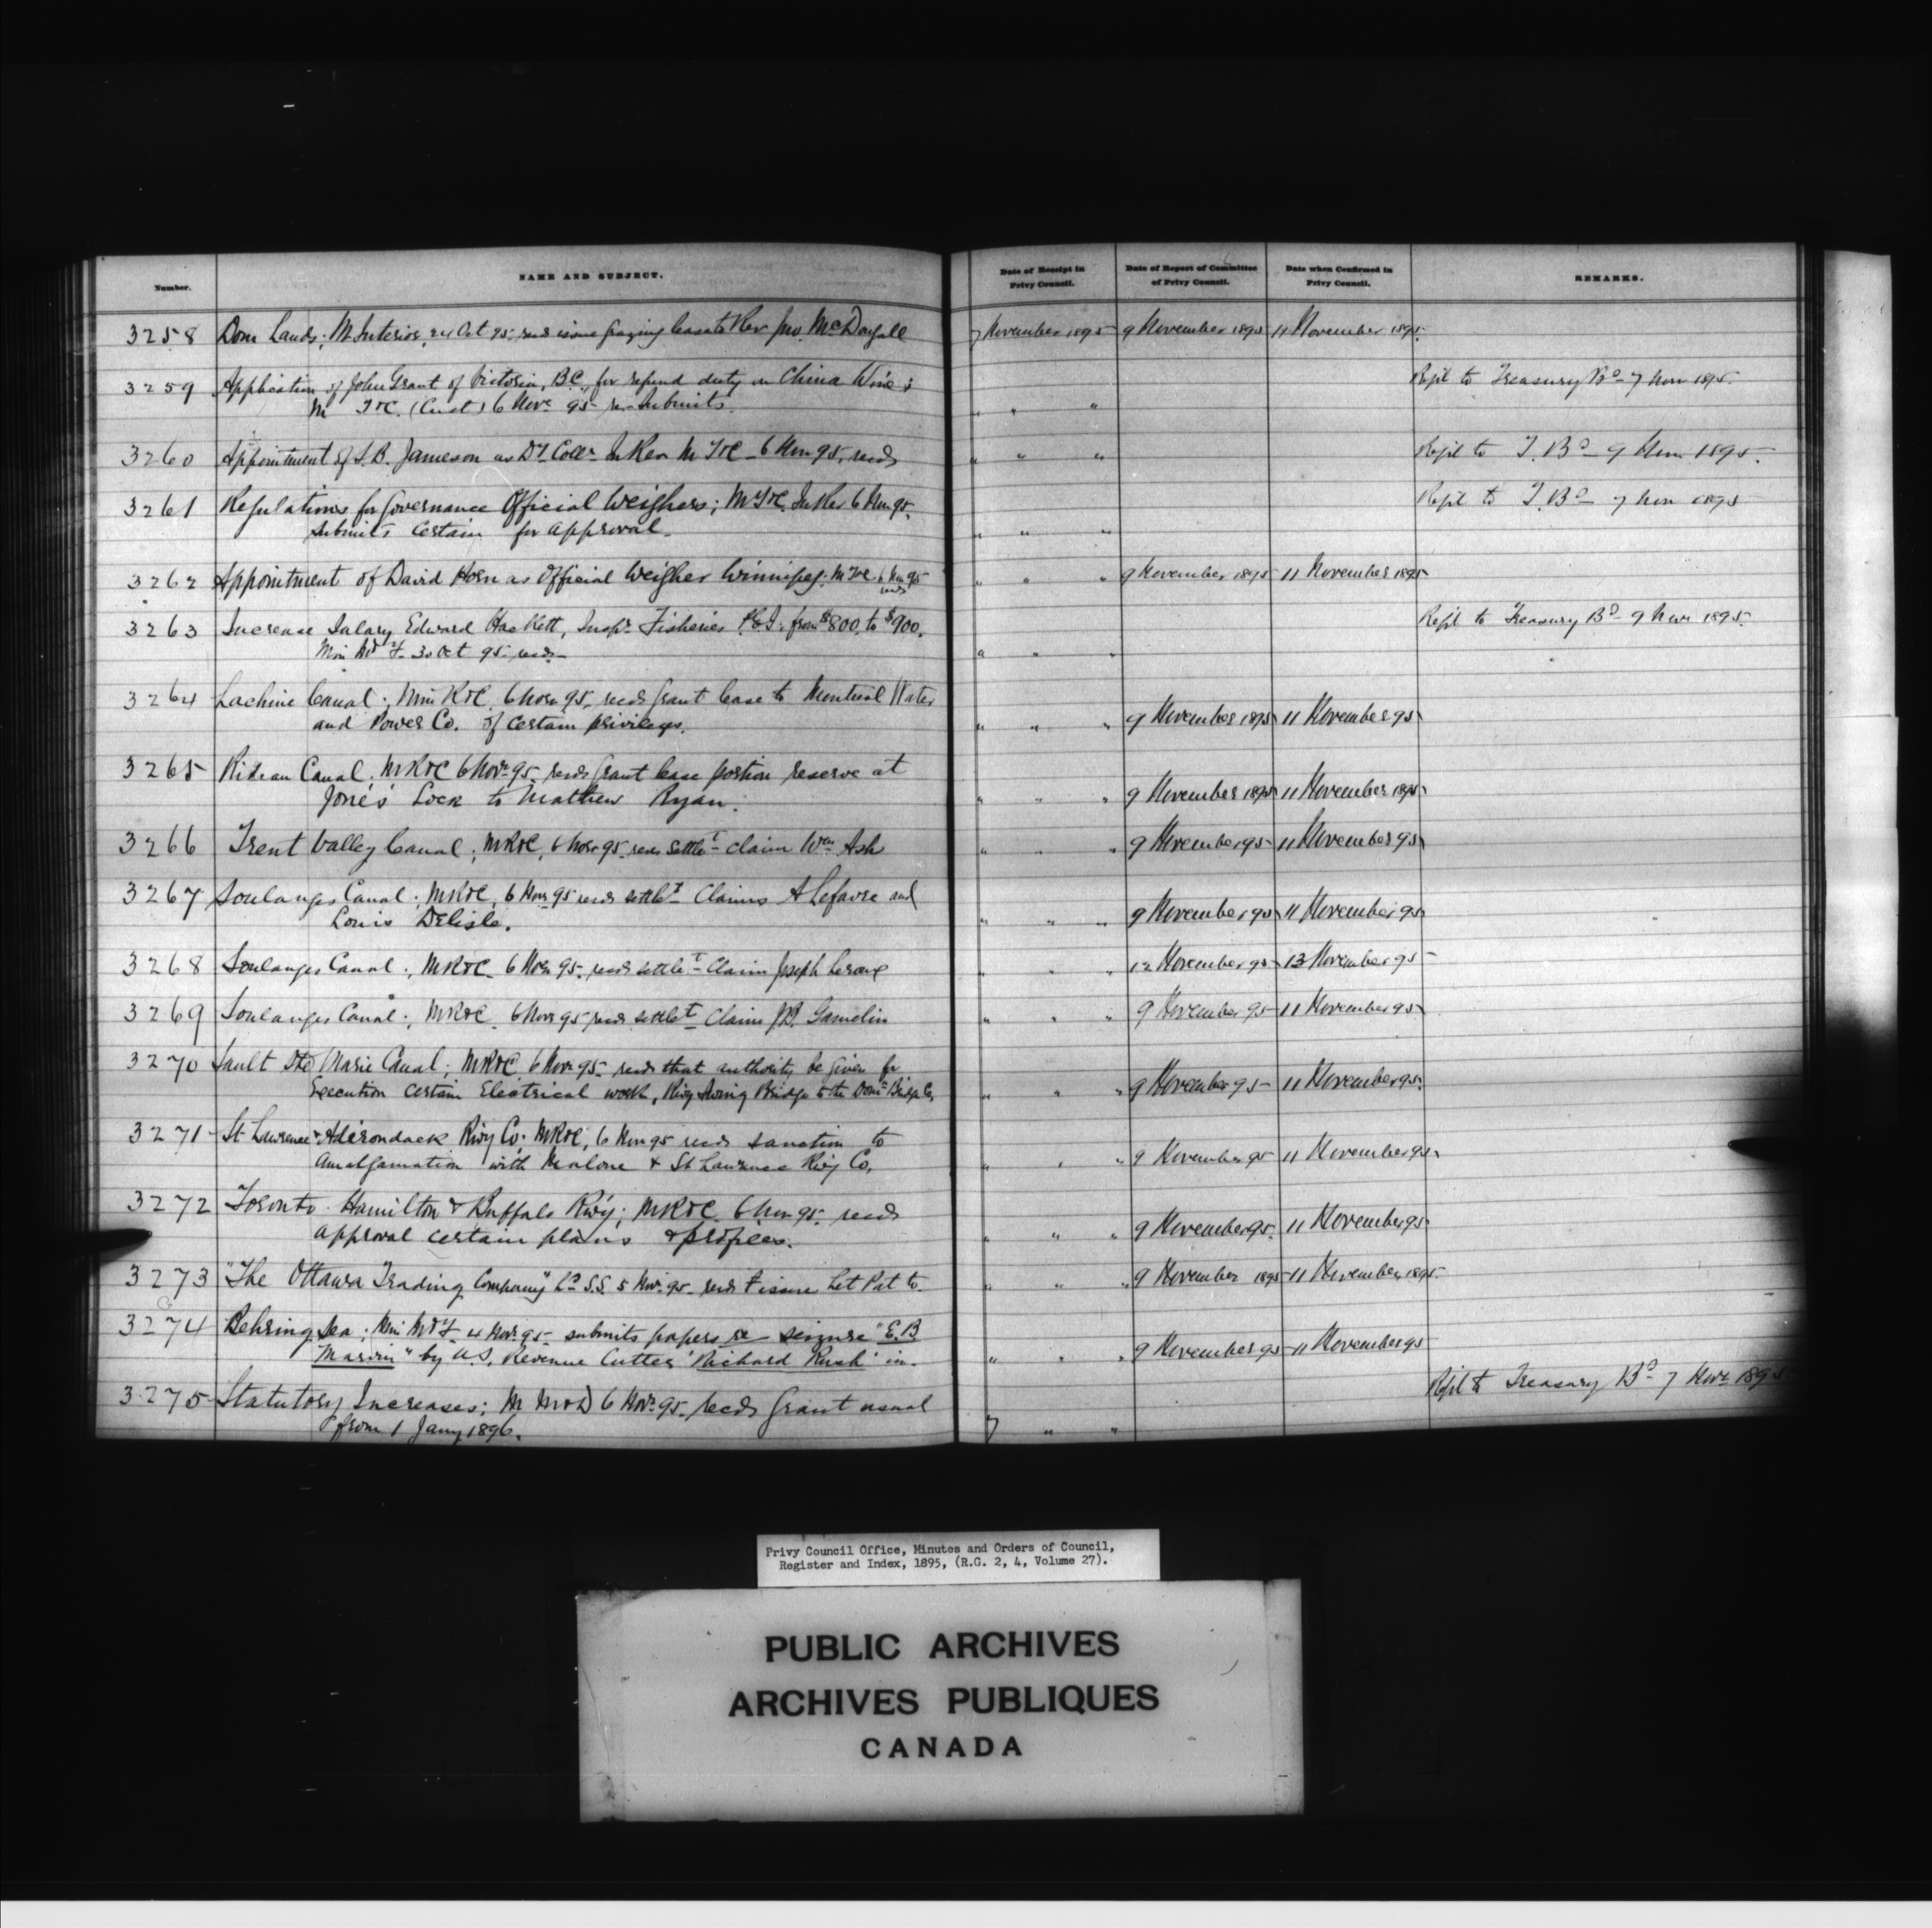 Number.
NAME AND SUBJECT.
Date of Receipt in
Privy Council.
Date of Report of Committee
of Privy Council.
Date when Confirmed in
Privy Council.
REMARKS.
3258 Dom Lands; M Interior, 24 Oct 95, recds issue grazing lease to Rev Jno. McDougall 7 November 1895 9 November 1895 11 November 1895.
3259 Application of John Grant of Victoria, B.C. for refund duty on China Wine; Refd to Treasury Bd 7 Nov 1895.
M T&C. (Cust) 6 Nov 95 submits. " " "
3260 Appointment of S.B. Jameson as Dy Collr In Rev M T&C 6 Nov 95, recds " " " Refd to T. Bd 9 Nov 1895.
3261 Regulations for Governance Official Weighers; M T&C. In Rev 6 Nov 95. Refd to T. Bd 7 Nov 1895
submits certain for approval. " " "
3262 Appointment of David Horn as Official Weigher Winnipeg; M T&C 6 Nov 95 " " " 9 November 1895 11 November 1895
recds
3263 Increase Salary Edward Hackett, Inspr. Fisheries P.E.I. from $800. to $900. Refd to Treasury Bd 9 Nov 1895.
Min M&F 30 Oct 95 recds " " "
3264 Lachine Canal; Min R&C, 6 Nov 95, recds grant lease to Montreal Water
and Power Co. of certain privileges. " " " 9 November 1895 11 November 95
3265 Rideau Canal. M R&C 6 Nov 95. recds grant lease portion reserve at
Jones' Lock to Mathew Ryan. " " " 9 November 1895 11 November 1895
3266 Trent Valley Canal; M R&C, 6 Nov 95 recds settlet claim Wm Ash " " " 9 November 95 11 November 95
3267 Soulanges Canal; M R&C, 6 Nov 95 recds settlet Claims A Lefavre and
Louis Delisle. " " " 9 November 95 11 November 95
3268 Soulanges Canal; M R&C 6 Nov 95. recds settlet Claim Joseph Leroux " " " 12 November 95 13 November 95
3269 Soulanges Canal; M R&C 6 Nov 95 recds settlet Claim J.B. Gamelin " " " 9 November 95 11 November 95
3270 Sault Ste Marie Canal; M R&C 6 Nov 95 recds that authority be given for
Execution certain Electrical work, Rwy Swing Bridge to the Domn Bridge Co. " " " 9 November 95 11 November 95.
3271 St Lawrence & Adirondack Rwy Co. M R&C, 6 Nov 95 recds sanction to
amalgamation with Malone & St Lawrence Rwy Co. " " " 9 November 95 11 November 95.
3272 Toronto Hamilton & Buffalo Rwy; M R&C 6 Nov 95. recds
approval certain plans & profiles. " " " 9 November 95. 11 November 95
3273 "The Ottawa Trading Company" Ld S.S. 5 Nov 95 recds issue Let Pat to " " " 9 November 1895 11 November 1895.
3274 Behring Sea; Min M&F 4 Nov 95 submits papers re seizure "E.B
Marvin" by U.S. Revenue Cutter 'Richard Rush' in. " " " 9 November 95 11 November 95
3275 Statutory Increases; M M&D 6 Nov 95. recds grant usual Refd to Treasury Bd 7 Nov 1895
from 1 Jany 1896. 7 " "
Privy Council Office, Minutes and Orders of Council,
Register and Index, 1895, (R.G. 2, 4, Volume 27).
PUBLIC ARCHIVES
ARCHIVES PUBLIQUES
CANADA